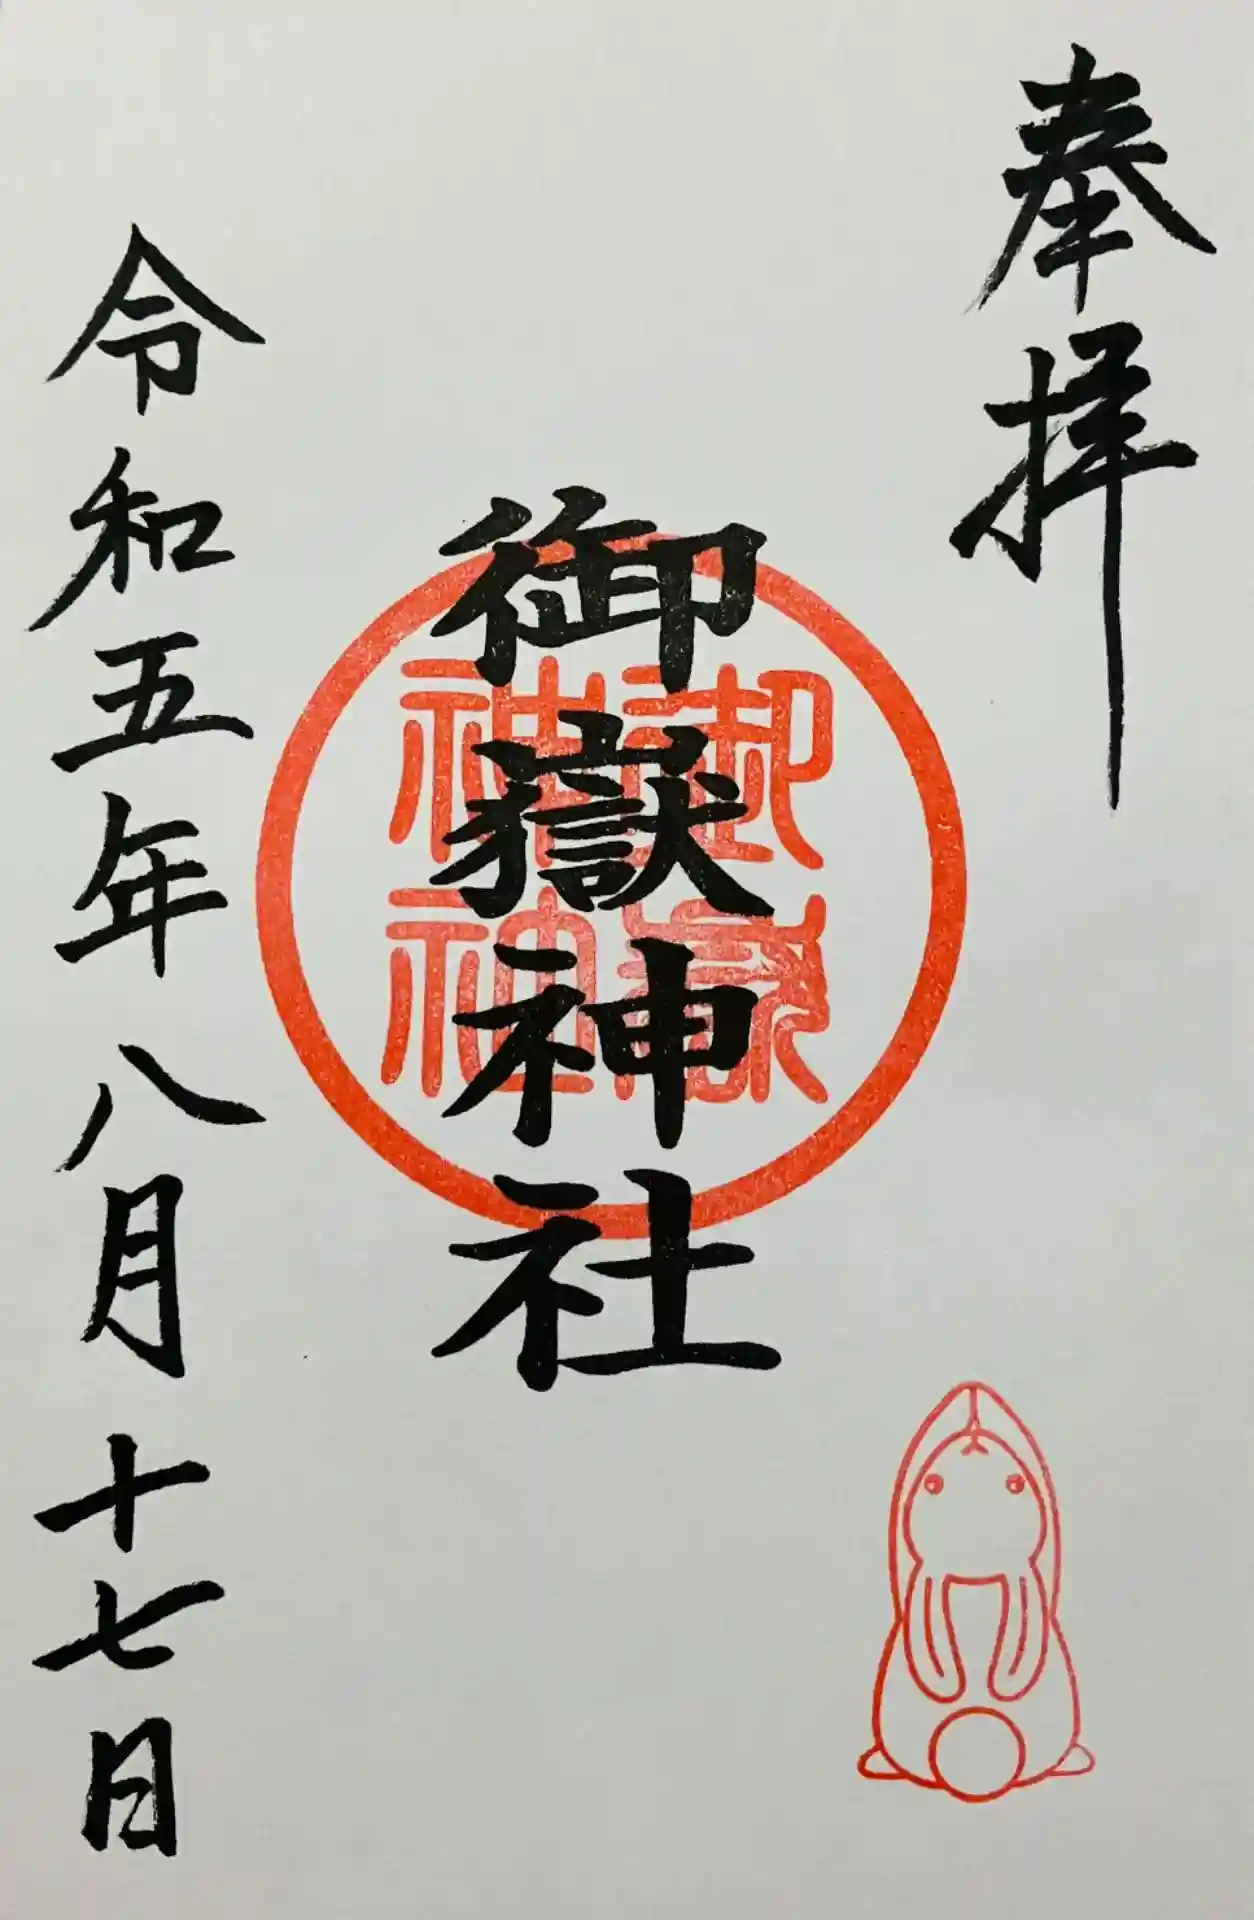 奉拝
御嶽神社
令和五年八月十七日